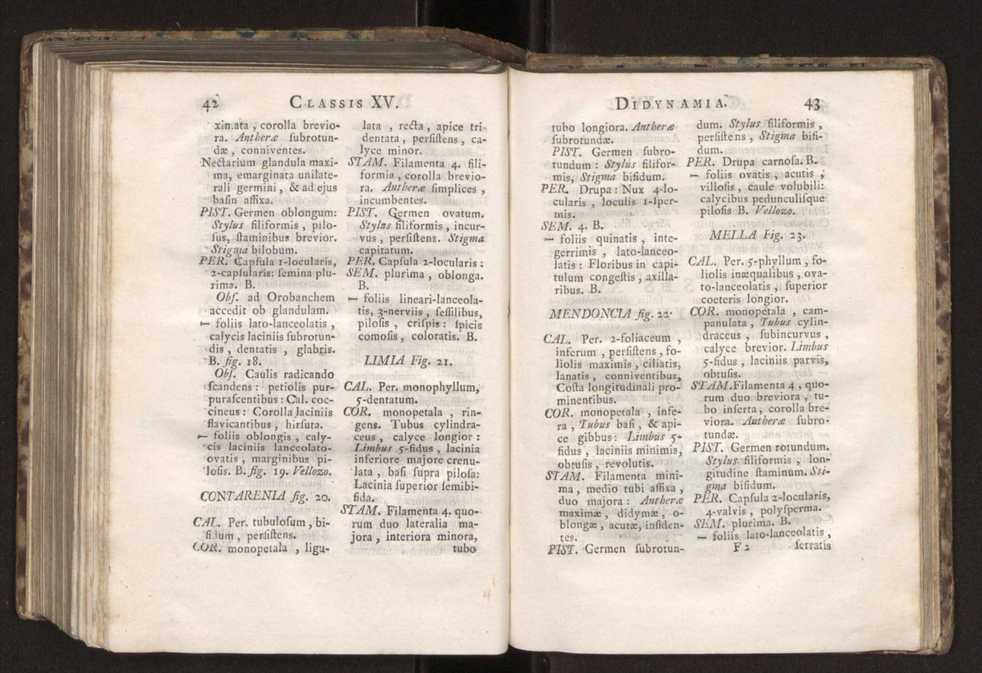 42 CLASSIS XV.
xin.ata , corolla brevio-
ra. Antheræ ſubrotun-
dæ , conniventes.
Nectarium glandula maxi-
ma, emarginata unilate-
rali germini , & ad ejus
baſin affixa.
PIST. Germen oblongum:
Stylus filiformis , pilo-
ſus, ſtaminibus brevior.
Stigma bilobum.
PER. Capſula 1-locularis,
2-capſularis: ſemina plu-
rima. B.
Obſ. ad Orobanchem
accedit ob glandulam.
— foliis lato-lanceolatis ,
calycis laciniis ſubrotun-
dis , dentatis , glabris.
B. fig. 18.
Obſ. Caulis radicando
ſcandens : petiolis pur-
puraſcentibus : Cal. coc-
cineus : Corolla laciniis
flavicantibus , hirſuta.
— foliis oblongis , caly-
cis laciniis lanceolato-
ovatis , marginibus pi-
loſis. B. fig. 19. Vellozo.
CONTARENIA fig. 20.
CAL. Per. tubuloſum , bi-
fidum , perſiſtens.
COR. monopetala , ligu-
lata , recta , apice tri-
dentata , perſiſtens , ca-
lyce minor.
STAM. Filamenta 4. fili-
formia , corolla brevio-
ra. Antheræ ſimplices ,
incumbentes.
PIST. Germen ovatum.
Stylus filiformis , incur-
vus , perſiſtens. Stigma
capitatum.
PER. Capſula 2-locularis ;
SEM. plurima , oblonga.
B.
— foliis lineari-lanceola-
tis, 3-nerviis , ſeſſilibus,
piloſis , criſpis : ſpicis
comoſis , coloratis. B.
LIMIA Fig. 21.
CAL. Per. monophyllum,
5-dentatum.
COR. monopetala , rin-
gens. Tubus cylindra-
ceus , calyce longior :
Limbus 5-fidus , lacinia
inferiore majore crenu-
lata , baſi ſupra piloſa:
Lacinia ſuperior ſemibi-
fida.
STAM. Filamenta 4. quo-
rum duo lateralia ma-
jora , interiora minora,
tubo
DIDYNAMIA. 43
tubo longiora. Antheræ
ſubrotundæ.
PIST. Germen ſubro-
tundum : Stylus filifor-
mis, Stigma bifidum.
PER. Drupa : Nux 4-lo-
cularis , loculis 1-ſper-
mis.
SEM. 4. B.
— foliis quinatis , inte-
gerrimis , lato-lanceo-
latis : Floribus in capi-
tulum congeſtis , axilla-
ribus. B.
MENDONCIA fig. 22.
CAL. Per. 2-foliaceum ,
inferum , perſiſtens , fo-
liolis maximis , ciliatis,
lanatis , conniventibus,
Coſta longitudinali pro-
minentibus.
COR. monopetala , infe-
ra , Tubus baſi , & api-
ce gibbus : Limbus 5-
fidus , laciniis minimis,
obtuſis , revolutis.
STAM. Filamenta mini-
ma , medio tubi affixa ,
duo majora : Antheræ
maximæ , didymæ , o-
blongæ , acutæ, inſiden-
tes.
PIST. Germen ſubrotun-
dum. Stylus filiformis ,
perſiſtens , Stigma bifi-
dum.
PER. Drupa carnoſa. B.
— foliis ovatis , acutis ,
villoſis , caule volubili:
calycibus pedunculiſque
piloſis B. Vellozo.
MELLA Fig. 23.
CAL. Per. 5-phyllum , fo-
liolis inæqualibus , ova-
to-lanceolatis , ſuperior
coeteris longior.
COR. monopetala , cam-
panulata , Tubus cylin-
draceus , ſubincurvus ,
calyce brevior. Limbus
5-fidus , laciniis parvis,
obtuſis.
STAM. Filamenta 4 , quo-
rum duo breviora , tu-
bo inſerta, corolla bre-
viora. Antheræ ſubro-
tundæ.
PIST. Germen rotundum.
Stylus filiformis , lon-
gitudine ſtaminum. Sti-
gma bifidum.
PER. Capſula 2-locularis,
4-valvis , polyſperma.
SEM. plurima. B.
— foliis lato-lanceolatis ,
F 2 ſerratis